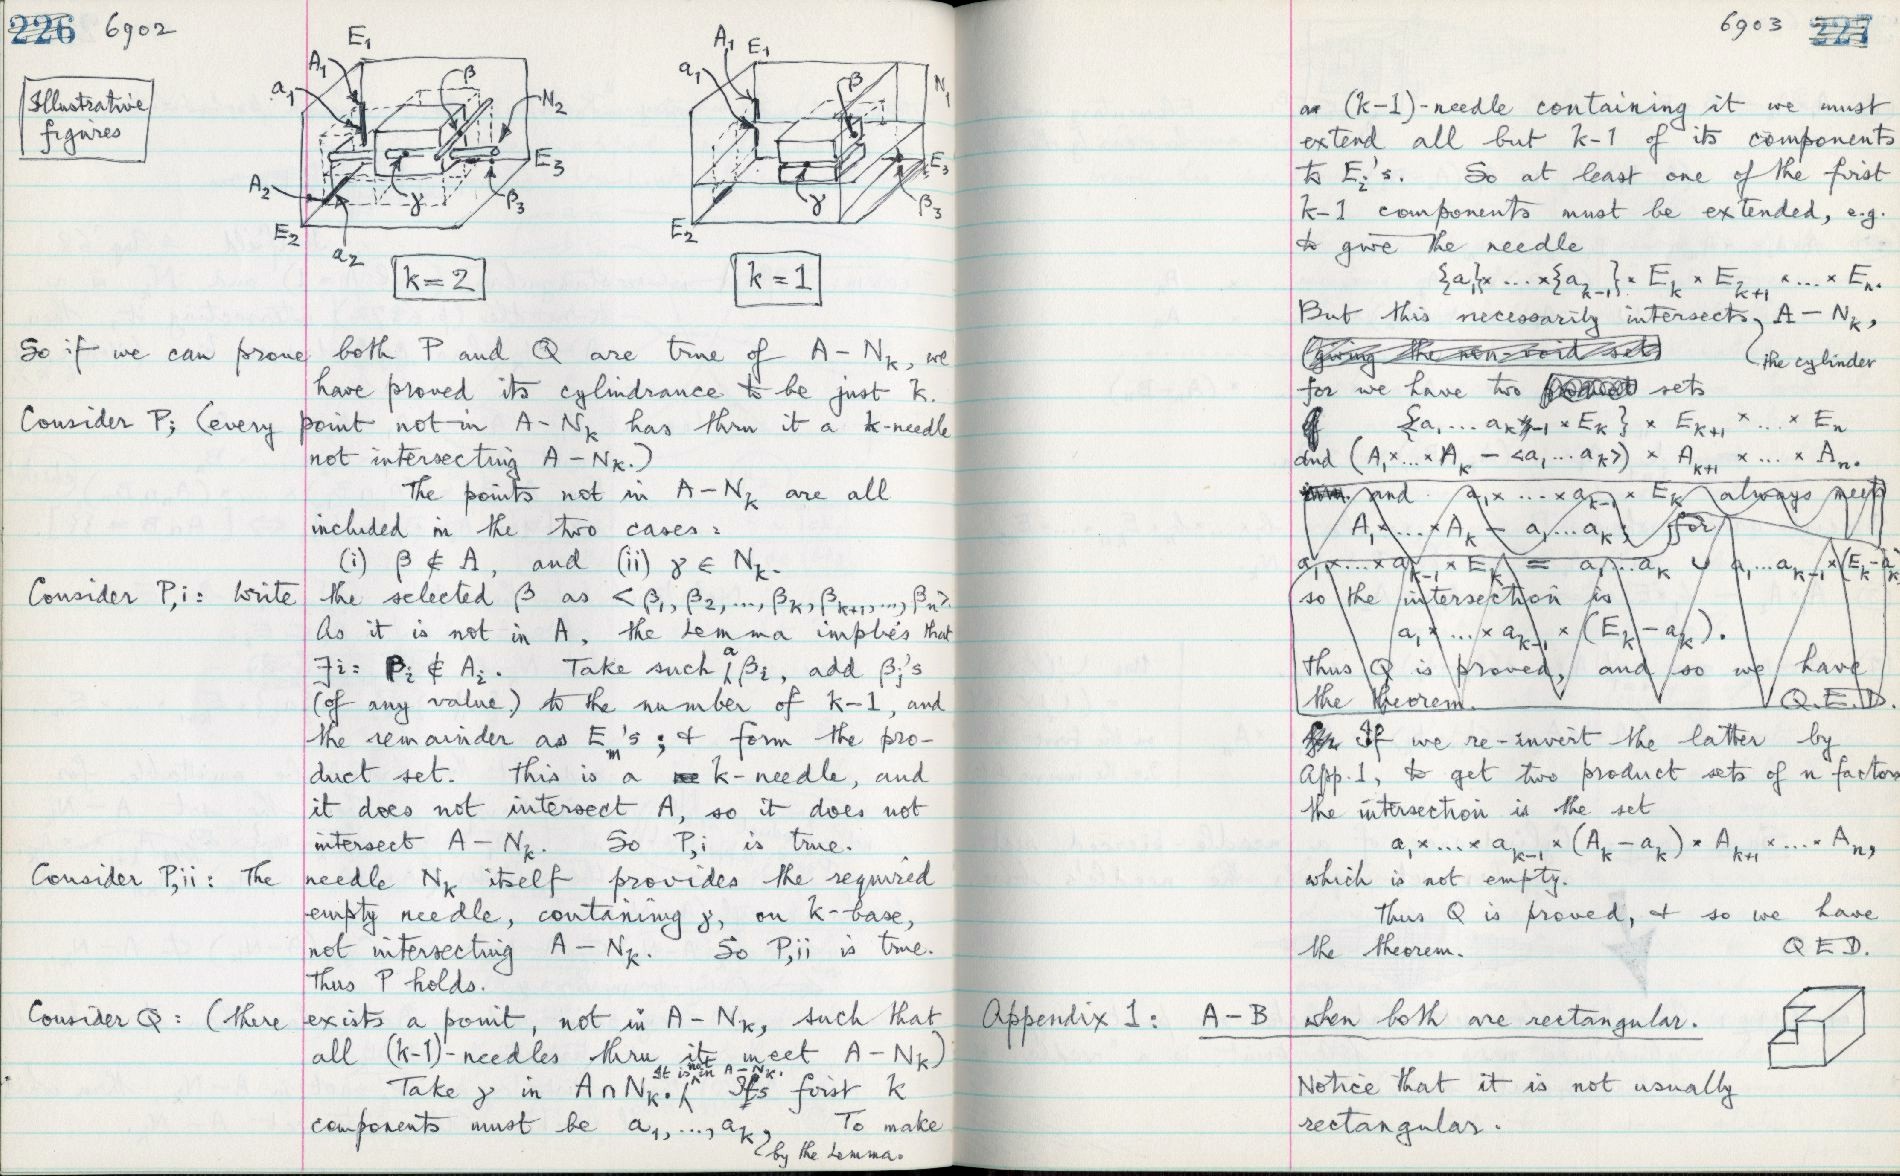 226 6902
Illustrative
figures
E₁
A₁
a₁
β
N₂
E₃
A₂
γ
β₃
E₂
a₂
k=2
A₁ E₁
a₁
β
N₁
E₃
γ
β₃
E₂
k=1
So if we can prove both P and Q are true of A−Nₖ, we
have proved its cylindrance to be just k.
Consider P; (every point not in A−Nₖ has thru it a k-needle
not intersecting A−Nₖ.)
The points not in A−Nₖ are all
included in the two cases:
(i) β ∉ A, and (ii) γ ∈ Nₖ.
Consider P,i: Write the selected β as <β₁, β₂, ..., βₖ, βₖ₊₁, ..., βₙ>.
As it is not in A, the Lemma implies that
∃i: βᵢ ∉ Aᵢ. Take such a βᵢ, add βⱼ's
(of any value) to the number of k−1, and
the remainder as Eₘ's; & form the pro-
duct set. This is a k-needle, and
it does not intersect A, so it does not
intersect A−Nₖ. So P,i is true.
Consider P,ii: The needle Nₖ itself provides the required
empty needle, containing γ, on k-base,
not intersecting A−Nₖ. So P,ii is true.
Thus P holds.
Consider Q: (there exists a point, not in A−Nₖ, such that
all (k-1)-needles thru it meet A−Nₖ)
Take γ in A∩Nₖ. It is not in A−Nₖ. Its first k
components must be a₁, ..., aₖ, by the Lemma. To make
6903 227
a (k−1)-needle containing it we must
extend all but k−1 of its components
to Eᵢ's. So at least one of the first
k−1 components must be extended, e.g.
to give the needle
{a₁}× ... ×{aₖ₋₁}× Eₖ × Eₖ₊₁ × ... × Eₙ.
But this necessarily intersects the cylinder A−Nₖ,
(giving the non-void set)
for we have two sets
{a₁ ... aₖ₋₁ × Eₖ} × Eₖ₊₁ × ... × Eₙ
and (A₁× ... ×Aₖ − <a₁ ... aₖ>) × Aₖ₊₁ × ... × Aₙ.
and a₁× ... ×aₖ₋₁ × Eₖ always meets
A₁× ... ×Aₖ − a₁ ... aₖ; for
a₁× ... ×aₖ₋₁×Eₖ = a₁ ... aₖ ∪ a₁ ... aₖ₋₁×(Eₖ−aₖ)
so the intersection is
a₁× ... ×aₖ₋₁ × (Eₖ−aₖ).
Thus Q is proved, and so we have
the theorem. Q.E.D.
If we re-invert the latter by
App.1, to get two product sets of n factors
the intersection is the set
a₁× ... ×aₖ₋₁×(Aₖ−aₖ)×Aₖ₊₁× ... ×Aₙ,
which is not empty.
Thus Q is proved, & so we have
the theorem. QED.
Appendix 1: A−B when both are rectangular.
Notice that it is not usually
rectangular.